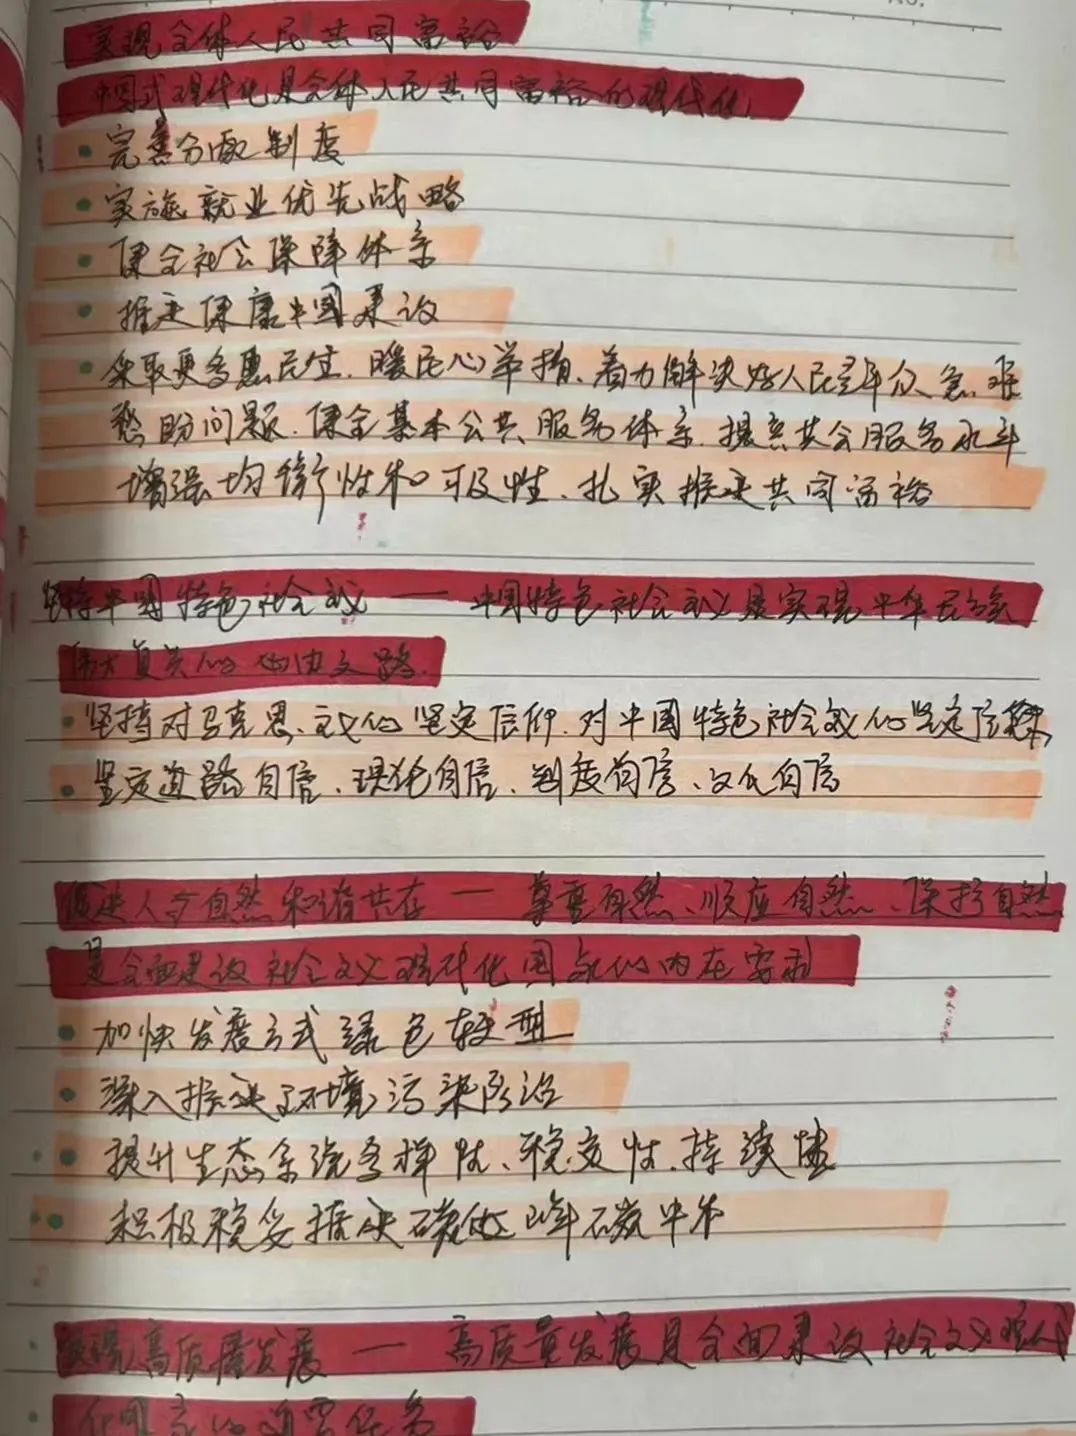 实现全体人民共同富裕
中国式现代化是全体人民共同富裕的现代化
完善分配制度
实施就业优先战略
健全社会保障体系
推进健康中国建设
采取更多惠民生、暖民心举措、着力解决好人民群众急难
愁盼问题、健全基本公共服务体系、提高共公服务水平
增强均衡性和可及性、扎实推进共同富裕
坚持中国特色社会主义 — 中国特色社会主义是实现中华民族
伟大复兴的必由之路.
坚持对马克思主义的坚定信仰、对中国特色社会主义的坚定信
坚定道路自信、理论自信、制度自信、文化自信
促进人与自然和谐共存 — 尊重自然、顺应自然、保护自然
是全面建设社会主义现代化国家的内在要求
加快发展方式绿色转型
深入推进环境污染防治
提升生态系统多样性、稳定性、持续性
积极稳妥推进碳达峰碳中和
实现高质量发展 — 高质量发展是全面建设社会主义现代
化国家的首要任务